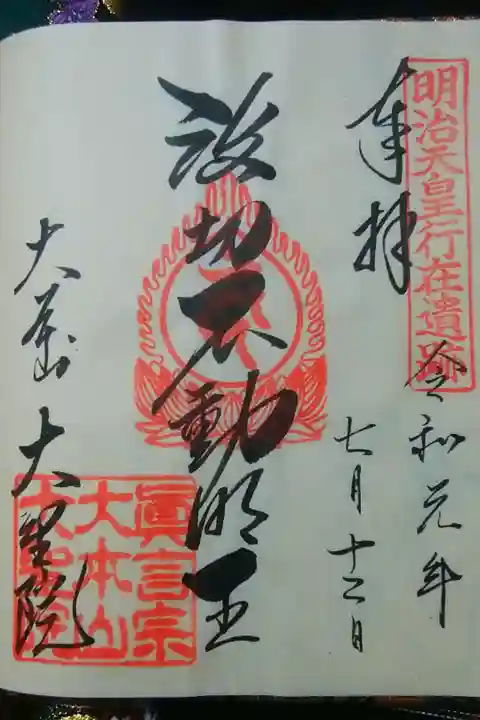 明治天皇行在遺跡
奉拝
令和元年
七月十二日
波切不動明王
眞言宗
大本山
大聖院
大本山 大聖院